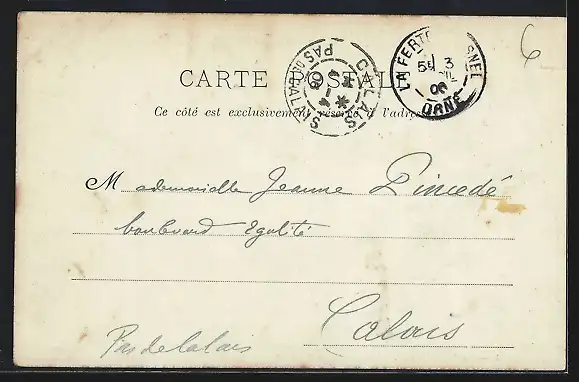 6
CARTE POSTALE
Ce côté est exclusivement réservé à l'adresse
CALAIS
PAS DE CALAIS
LA FERTÉ FRESNEL
5E 3
ORNE
Mademoiselle Jeanne Pincedé
boulevard Egalité
Calais
Pas de Calais